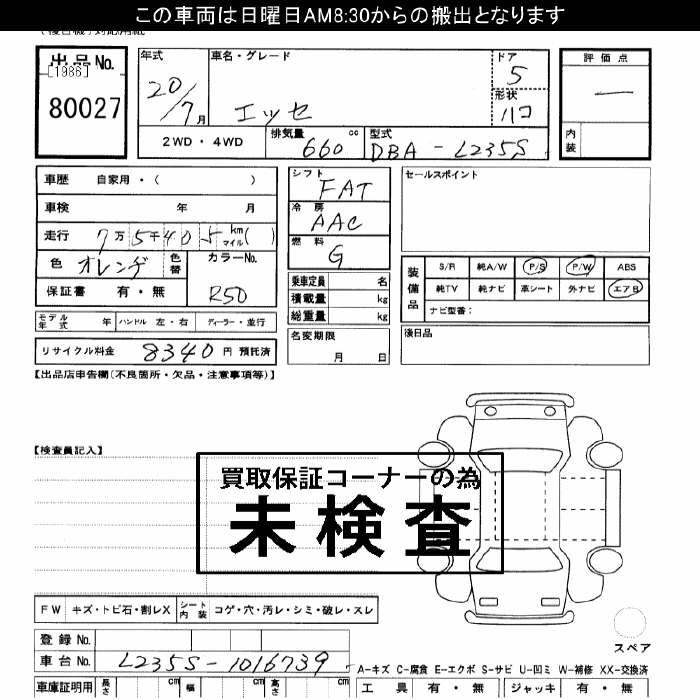 この車両は日曜日AM8:30からの搬出となります
出品No.
[1986]
80027
年式
20/7月
車名・グレード
エッセ
ドア
5
形状
ハコ
評価点
―
内装
2WD・4WD
排気量
660 cc
型式
DBA-L235S
車歴 自家用・( )
車検 年 月
走行 7万5千405 km マイル( )
色 オレンヂ 色替
カラーNo.
R50
保証書 有・無
シフト
FAT
冷房
AAC
燃料
G
乗車定員 名
積載量 kg
総重量 kg
名変期限
月 日
セールスポイント
装備品
S/R 純A/W P/S P/W ABS
純TV 純ナビ 革シート 外ナビ エアB
ナビ型番:
後日品
モデル年式 年 ハンドル 左・右 ディーラー・並行
リサイクル料金 8340 円 預託済
【出品店申告欄(不良箇所・欠品・注意事項等)】
【検査員記入】
買取保証コーナーの為
未検査
FW キズ・トビ石・割レX シート内装 コゲ・穴・汚レ・シミ・破レ・スレ
登録No.
車台No. L235S-1016739
車庫証明用 長さ cm 幅 cm 高さ cm
スペア
A-キズ C-腐食 E-エクボ S-サビ U-凹ミ W-補修 XX-交換済
工具 有・無 ジャッキ 有・無